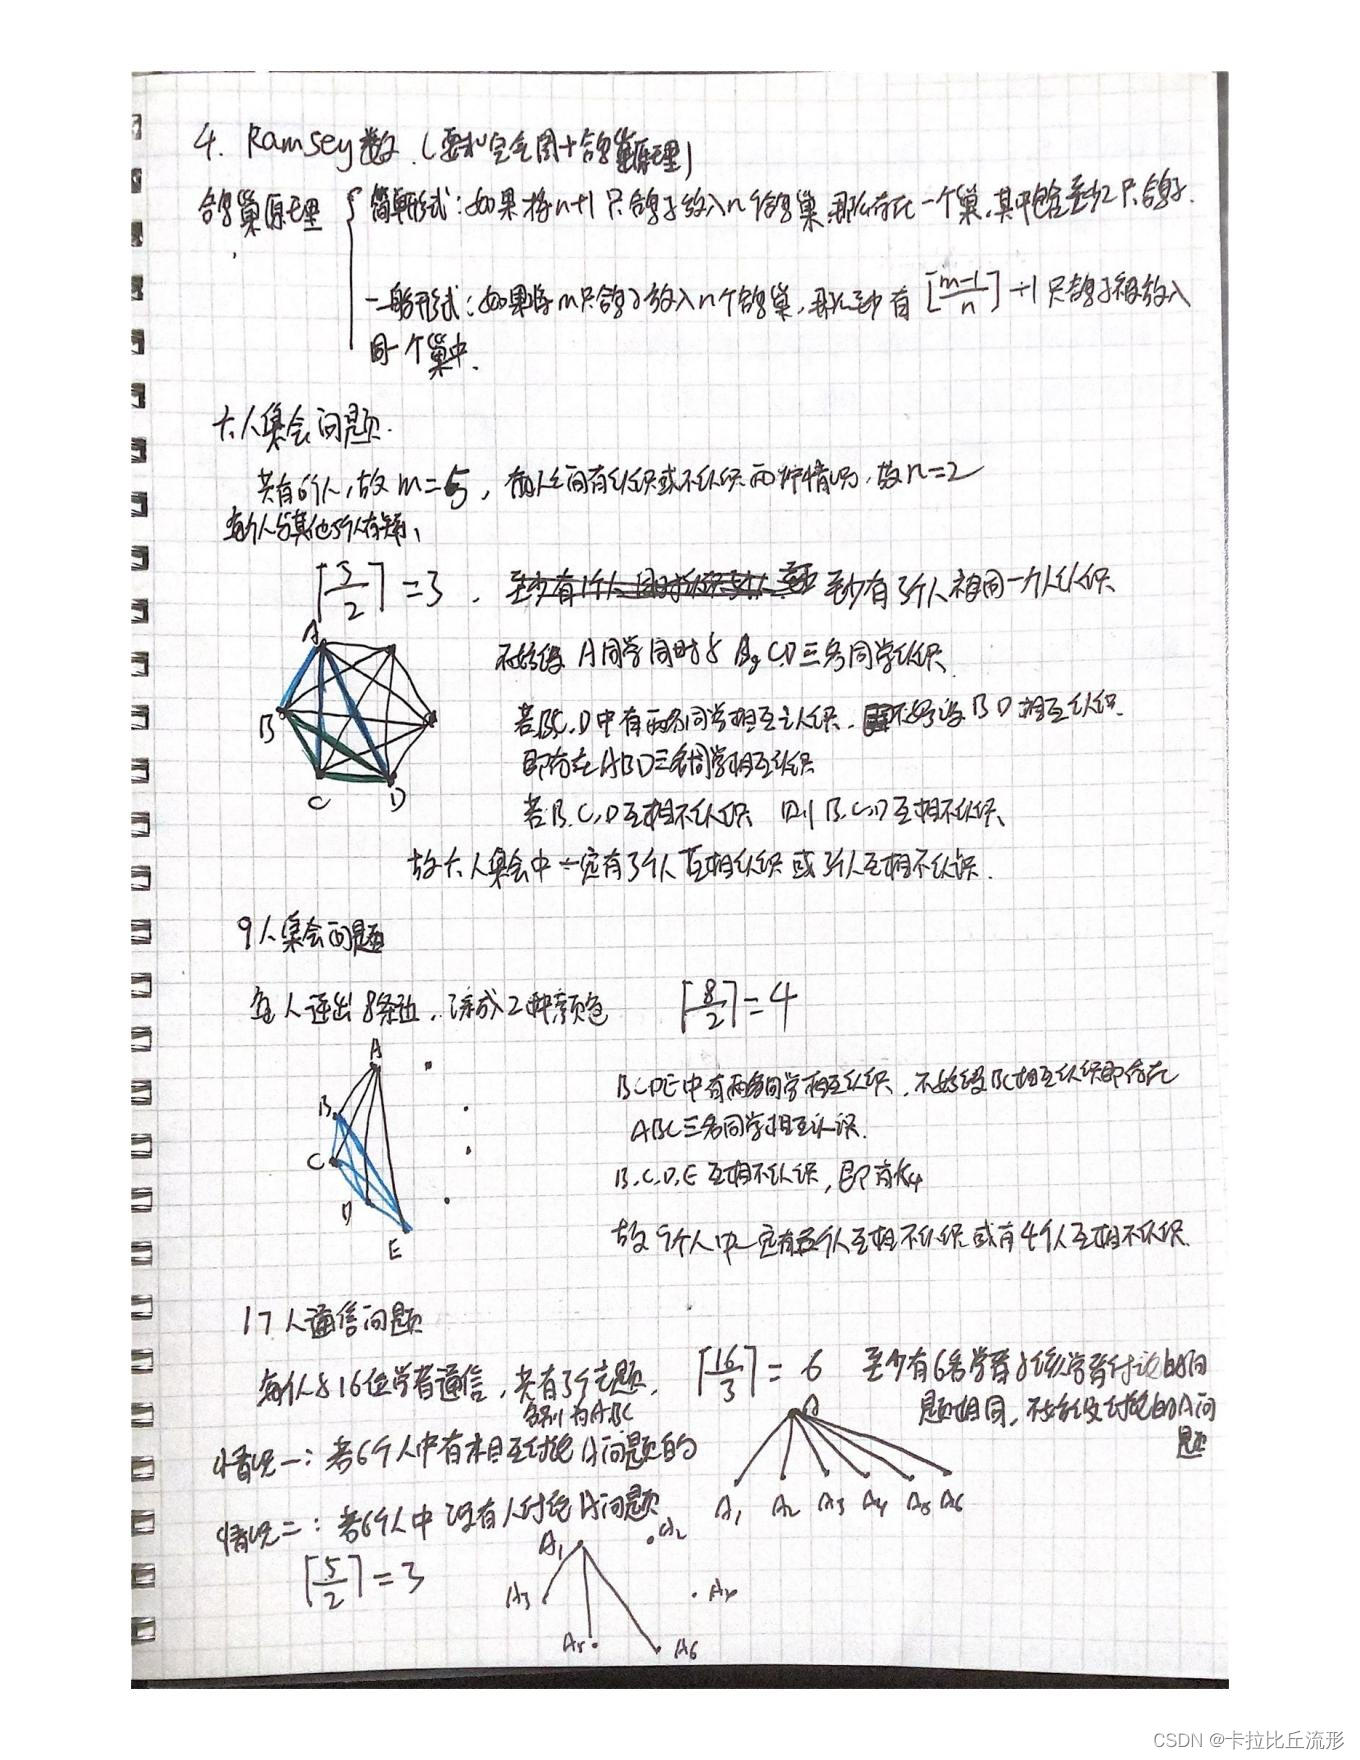 4. Ramsey数.(要和完全图+鸽巢原理)
鸽巢原理 { 简单形式:如果将n+1只鸽子放入n个鸽巢,那么存在一个巢,其中包含至少2只鸽子.
一般形式:如果将m只鸽子放入n个鸽巢,那么至少有[(m-1)/n]+1只鸽子被放入
同一个巢中.
六人集会问题.
共有6个人,故m=5,每人之间有认识或不认识两种情况,故n=2
每个人与其他5个人有
⌈5/2⌉=3. 至少有3个人都同一个人认识
不妨设A同学同时与B,C,D三名同学认识
若B,C,D中有两名同学相互认识.不妨设BD相互认识.
即存在ABD三名同学相互认识
若B.C.D互相不认识 则B.C.D互相不认识
故六人集会中一定有3个人互相认识或3个人互相不认识.
A
B
C D
9人集会问题
每人连出8条边,涂成2种颜色 ⌈8/2⌉=4
BCDE中有两名同学相互认识.不妨设BC相互认识即存在
ABC三名同学相互认识.
B.C.D.E互相不认识,即有K4
故9个人中一定有三个人互相不认识或有4个人互相不认识.
A
B
C
D
E
17人通信问题
每个人与16位学者通信,共有3个主题. ⌈16/3⌉=6 至少有6名学者与该学者讨论的问
分别为ABC
题相同,不妨设讨论的A问
题
情况一:若6个人中有相互讨论A问题的
A
A1 A2 A3 A4 A5 A6
情况二:若6个人中没有人讨论A问题
⌈5/2⌉=3
A1 A2
A3 A4
A5 A6
CSDN @卡拉比丘流形